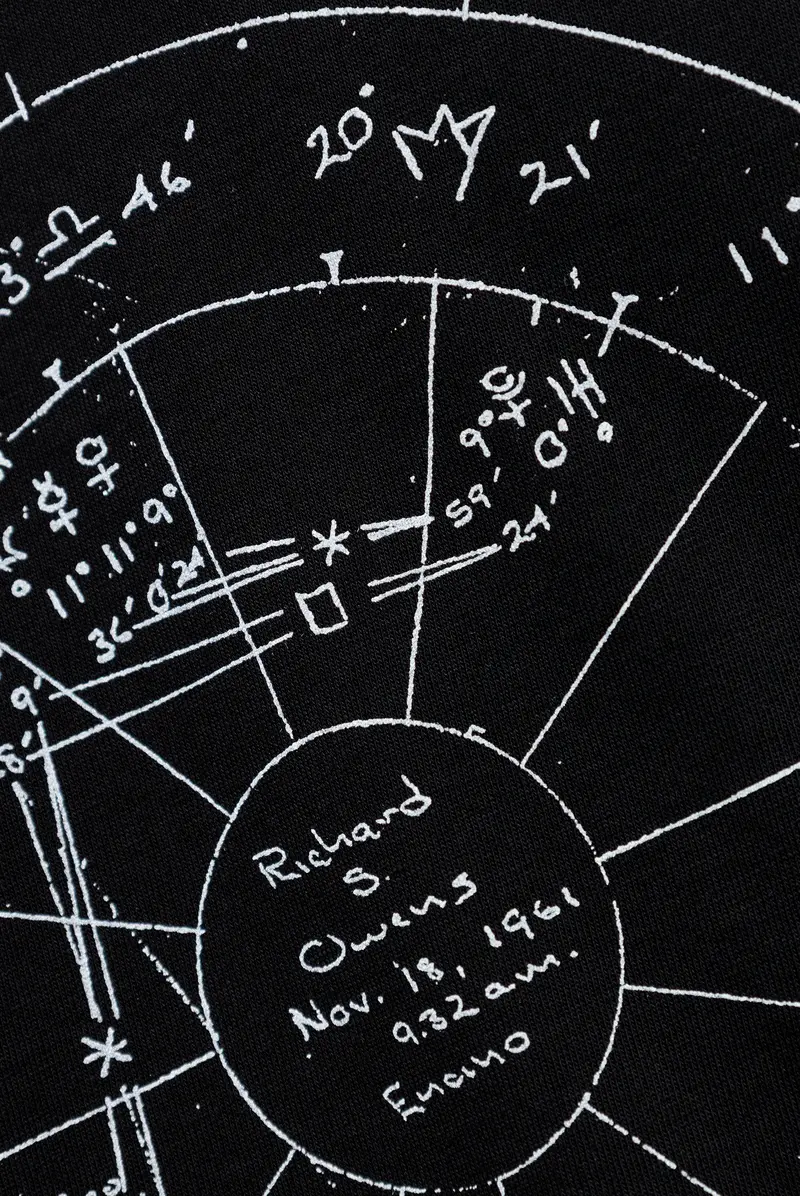 20° ♍ 21'
♎ 46'
11°
9° ☿
0° ♓
59'
24'
☿ ♀
11° 11° 9°
36' 0' 24'
9'
8'
Richard
S.
Owens
Nov. 18, 1961
9.32 a.m.
Encino